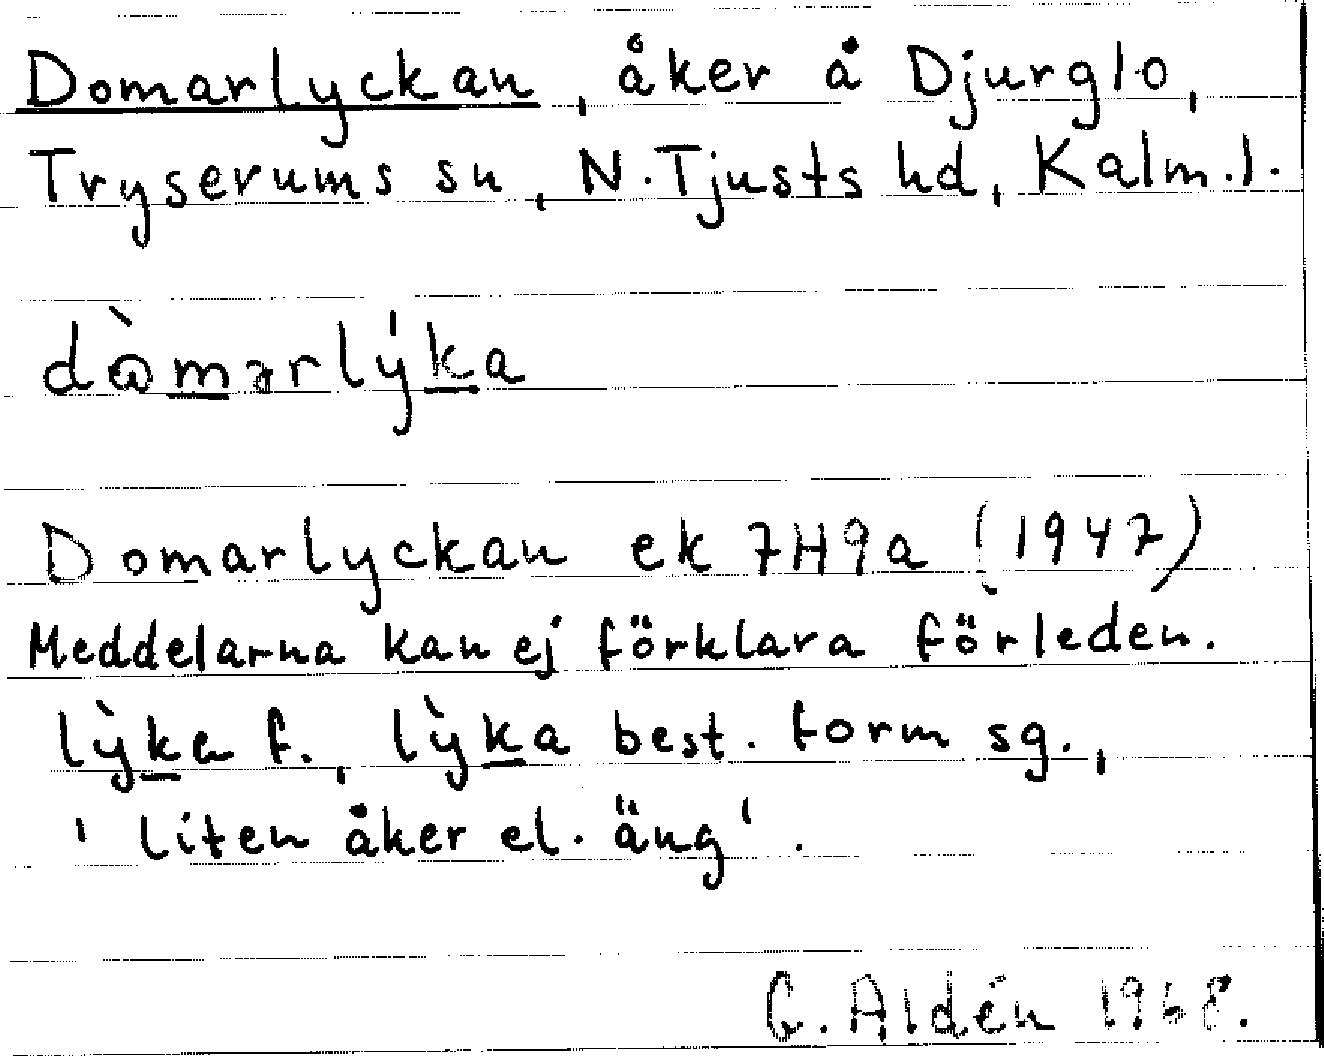 Domarlyckan, åker å Djurglo,
Tryserums sn, N. Tjusts hd, Kalm. l.
dὼmərlýka
Domarlyckan ek 7H9a (1947)
Meddelarna kan ej förklara förleden.
lỳka f., lỳka best. form sg.,
' liten åker el. äng'.
G. Aldén 1968.